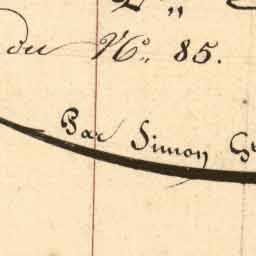 du N.º 85.
Bar Simon